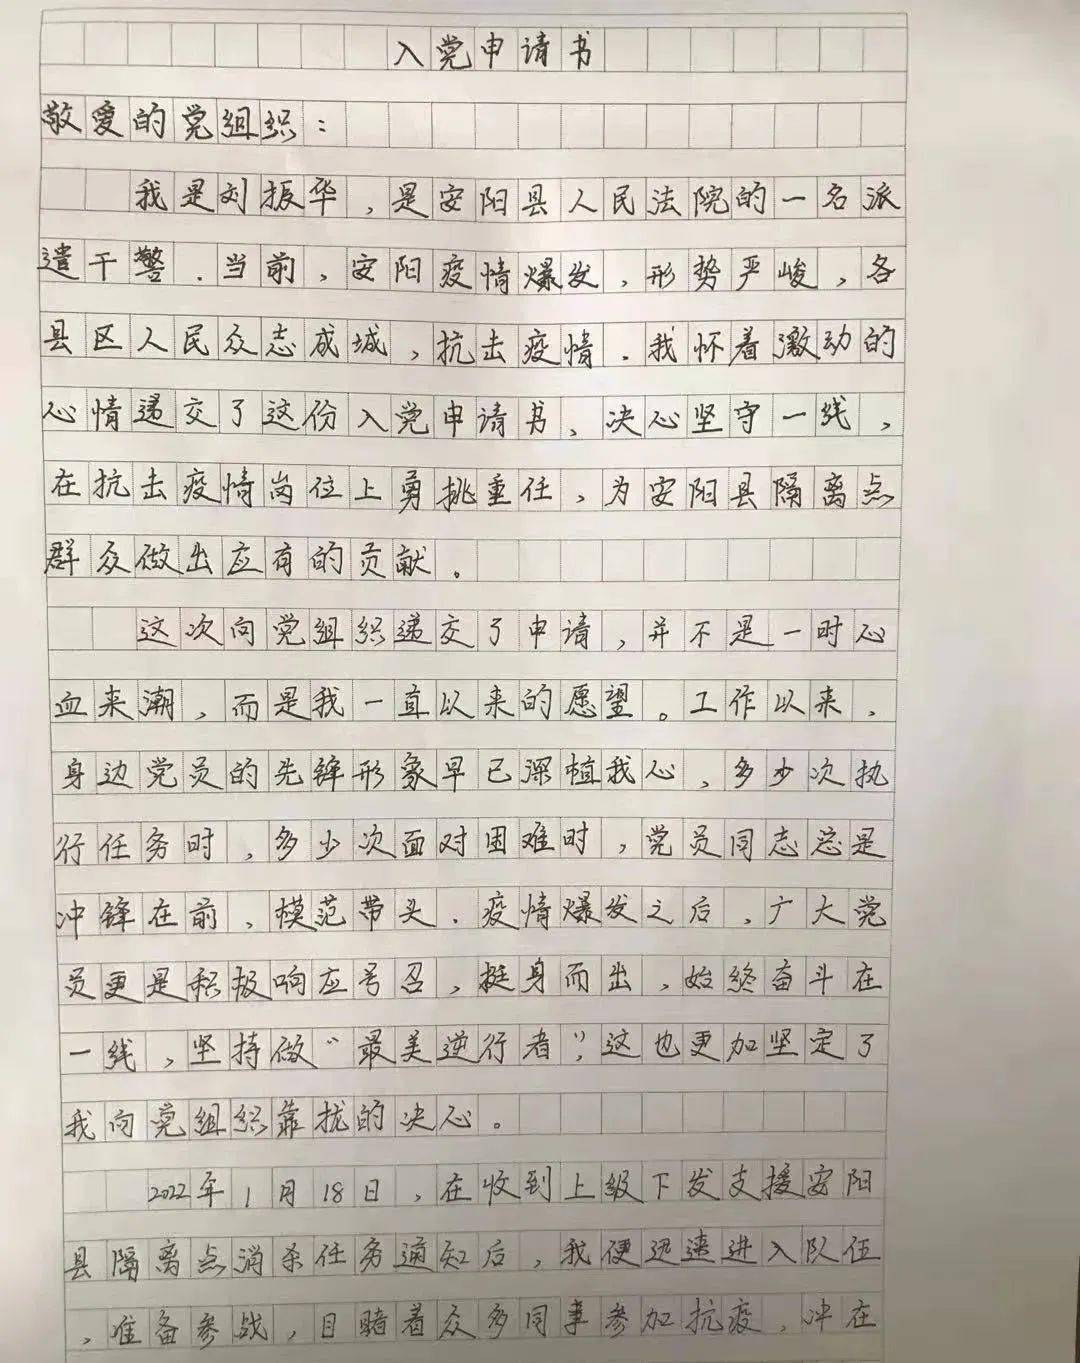 入党申请书
敬爱的党组织：
我是刘振华，是安阳县人民法院的一名派
遣干警．当前，安阳疫情爆发，形势严峻，各
县区人民众志成城，抗击疫情．我怀着激动的
心情递交了这份入党申请书、决心坚守一线，
在抗击疫情岗位上勇挑重任，为安阳县隔离点
群众做出应有的贡献。
这次向党组织递交了申请，并不是一时心
血来潮，而是我一直以来的愿望。工作以来，
身边党员的先锋形象早已深植我心，多少次执
行任务时，多少次面对困难时，党员同志总是
冲锋在前，模范带头．疫情爆发之后，广大党
员更是积极响应号召，挺身而出，始终奋斗在
一线，坚持做“最美逆行者”，这也更加坚定了
我向党组织靠拢的决心。
2022年1月18日，在收到上级下发支援安阳
县隔离点消杀任务通知后，我便迅速进入队伍
，准备参战，目睹着众多同事参加抗疫，冲在